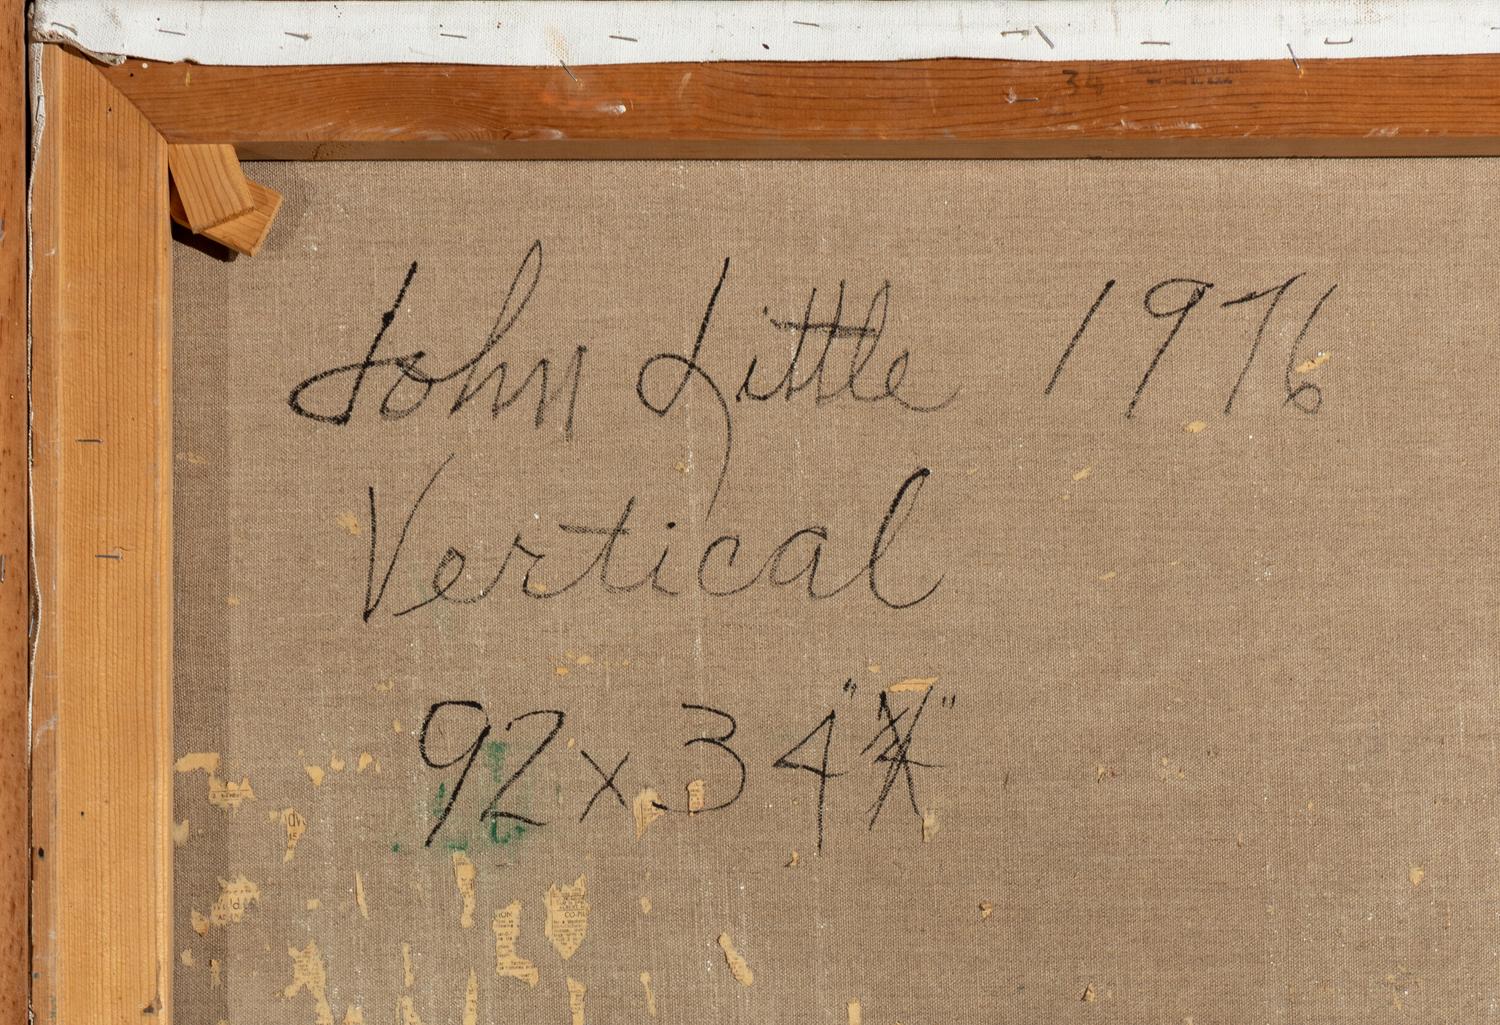 34
John Little 1976
Vertical
92 x 34" "